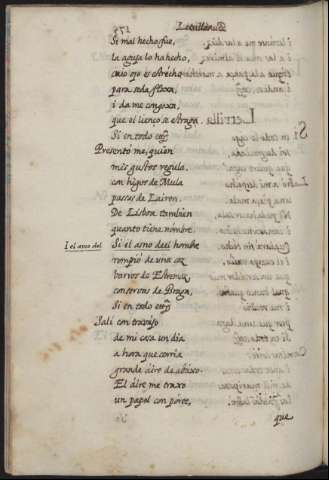 Letrillas
Si mal hecho fue,
la aguja lo ha hecho,
cuio ojo es estrecho
para seda floxa,
i da me congoxa,
que el lienço se
Si en todo
Presentó me, quien
mis gustos regula,
con higos de Mula
passas de Lairen.
De Lisboa tambien
quanto tiene nombre.
I el asno del
Si el asno del hombre
rompió de una coz
barros de Estremoz
conservas de Braga,
Si en todo
Sali con trabajo
de mi casa un dia
a hora que corria
grande aire de abaxo.
El aire me traxo
un papel con porte,
que